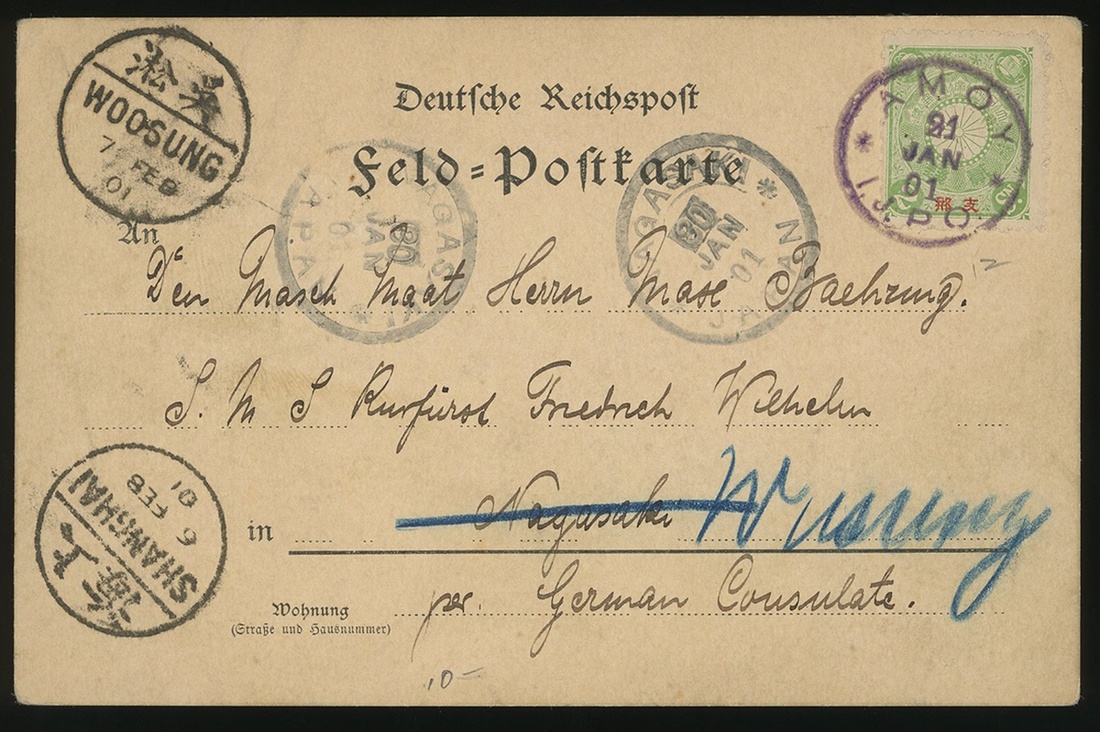 淞吳
WOOSUNG
7 FEB
01
Deutsche Reichspost
Feld=Postkarte
AMOY
21
JAN
01
I.J.P.O.
支那
NAGASAKI
30
JAN
01
JAPAN
NAGASAKI
30
JAN
01
JAPAN
An
12
Den Masch Maat Herrn Maxe
S. M S Kurfürst Friedrich Wilhelm
in Nagasaki Wusung
上海
SHANGHAI
6 FEB
01
Wohnung
(Straße und Hausnummer)
per. German Consulate.
10-